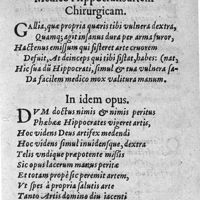 Medico Hippocratidarum
Chirurgicam.
Gallia, quæ propria quæris tibi vulnera dextra,
Quamq; agit insanus dura per arma furor,
Hactenus emissum qui sisteret arte cruorem
Defuit, At deinceps qui tibi sistat, habes: (nat,
Hic sua dũ Hippocrati, simul & tua vulnera sa-
Da facilem medico mox valitura manum.
In idem opus.
DVM doctus nimis & nimis peritus
Phœbææ Hippocrates vigeret artis,
Hoc videns Deus artifex medendi
Hoc videns simul inuidensque, dextra
Telis vndique præpotente missis
Sic opus lacerum manus perita
Et totam propè sic peremit artem,
Vt spes à propria salutis arte
Tanto Artis domino diu iacenti